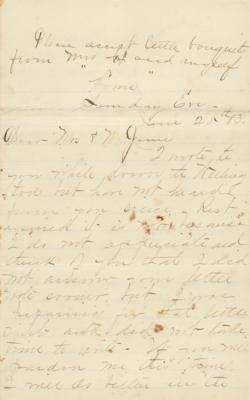 Please accept little bouquet
from Mrs H and myself
"Home"
Sunday Eve -
June 25th 93.
Dear Mrs & Mr
I wrote to
you while down to
but have not heard
from you since. Rest
assured it is not because
I do not appreciate and
think of you that I did
not answer your letter
sooner, but I was
preparing for that
and did not have
time to write - If you will
pardon me this time
I will do better in the